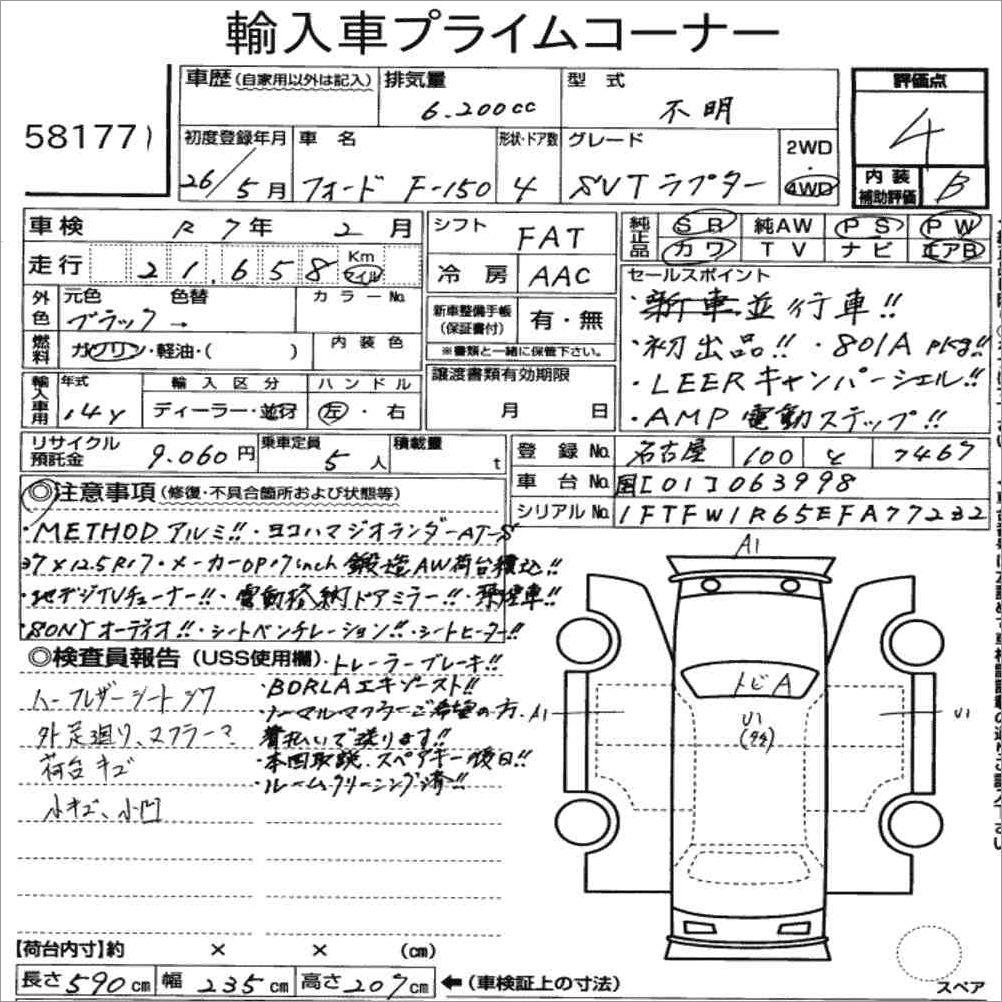 輸入車プライムコーナー
58177
車歴(自家用以外は記入) 排気量 6.200cc 型式 不明 評価点 4
初度登録年月 26/5月 車名 フォード F-150 形状・ドア数 4 グレード SVTラプター 2WD・4WD 内装補助評価 B
車検 R7年 2月 シフト FAT 純正品 SR 純AW PS PW
走行 21,658 Km マイル 冷房 AAC カワ TV ナビ エアB
外色 元色 ブラック 色替 → カラーNo.
燃料 ガソリン・軽油・( ) 内装色
新車整備手帳(保証書付) 有・無
※書類と一緒に保管下さい。
輸入車用 年式 14y 輸入区分 ディーラー・並行 ハンドル 左・右
譲渡書類有効期限 月 日
セールスポイント
・新車並行車!!
・初出品!! ・801A pkg!!
・LEERキャンパーシェル!!
・AMP電動ステップ!!
リサイクル預託金 9.060円 乗車定員 5人 積載量 t
登録No. 名古屋 100 や 7467
車台No. 国[01]063998
シリアルNo. 1FTFW1R65EFA77232
◎注意事項(修復・不具合箇所および状態等)
・METHODアルミ!!・ヨコハマジオランダーAT-S
37×12.5R17・メーカーOP17inch鍛造AW荷台積込!!
・地デジTVチューナー!!・電動格納ドアミラー!!・禁煙車!!
・SONYオーディオ!!・シートベンチレーション!!・シートヒーター!!
◎検査員報告(USS使用欄)・トレーラーブレーキ!!
・BORLAエキゾースト!!
・ノーマルマフラーご希望の方、
着払いで送ります!!
・本国取説、スペアキー後日!!
・ルームクリーニング済!!
ハーフレザーシートシワ
外足廻り、マフラーマ
荷台キズ
小キズ、小凹
A1
トビA
A1
U1
U1
【荷台内寸】約 × × (cm)
長さ590cm 幅235cm 高さ207cm ←(車検証上の寸法)
スペア